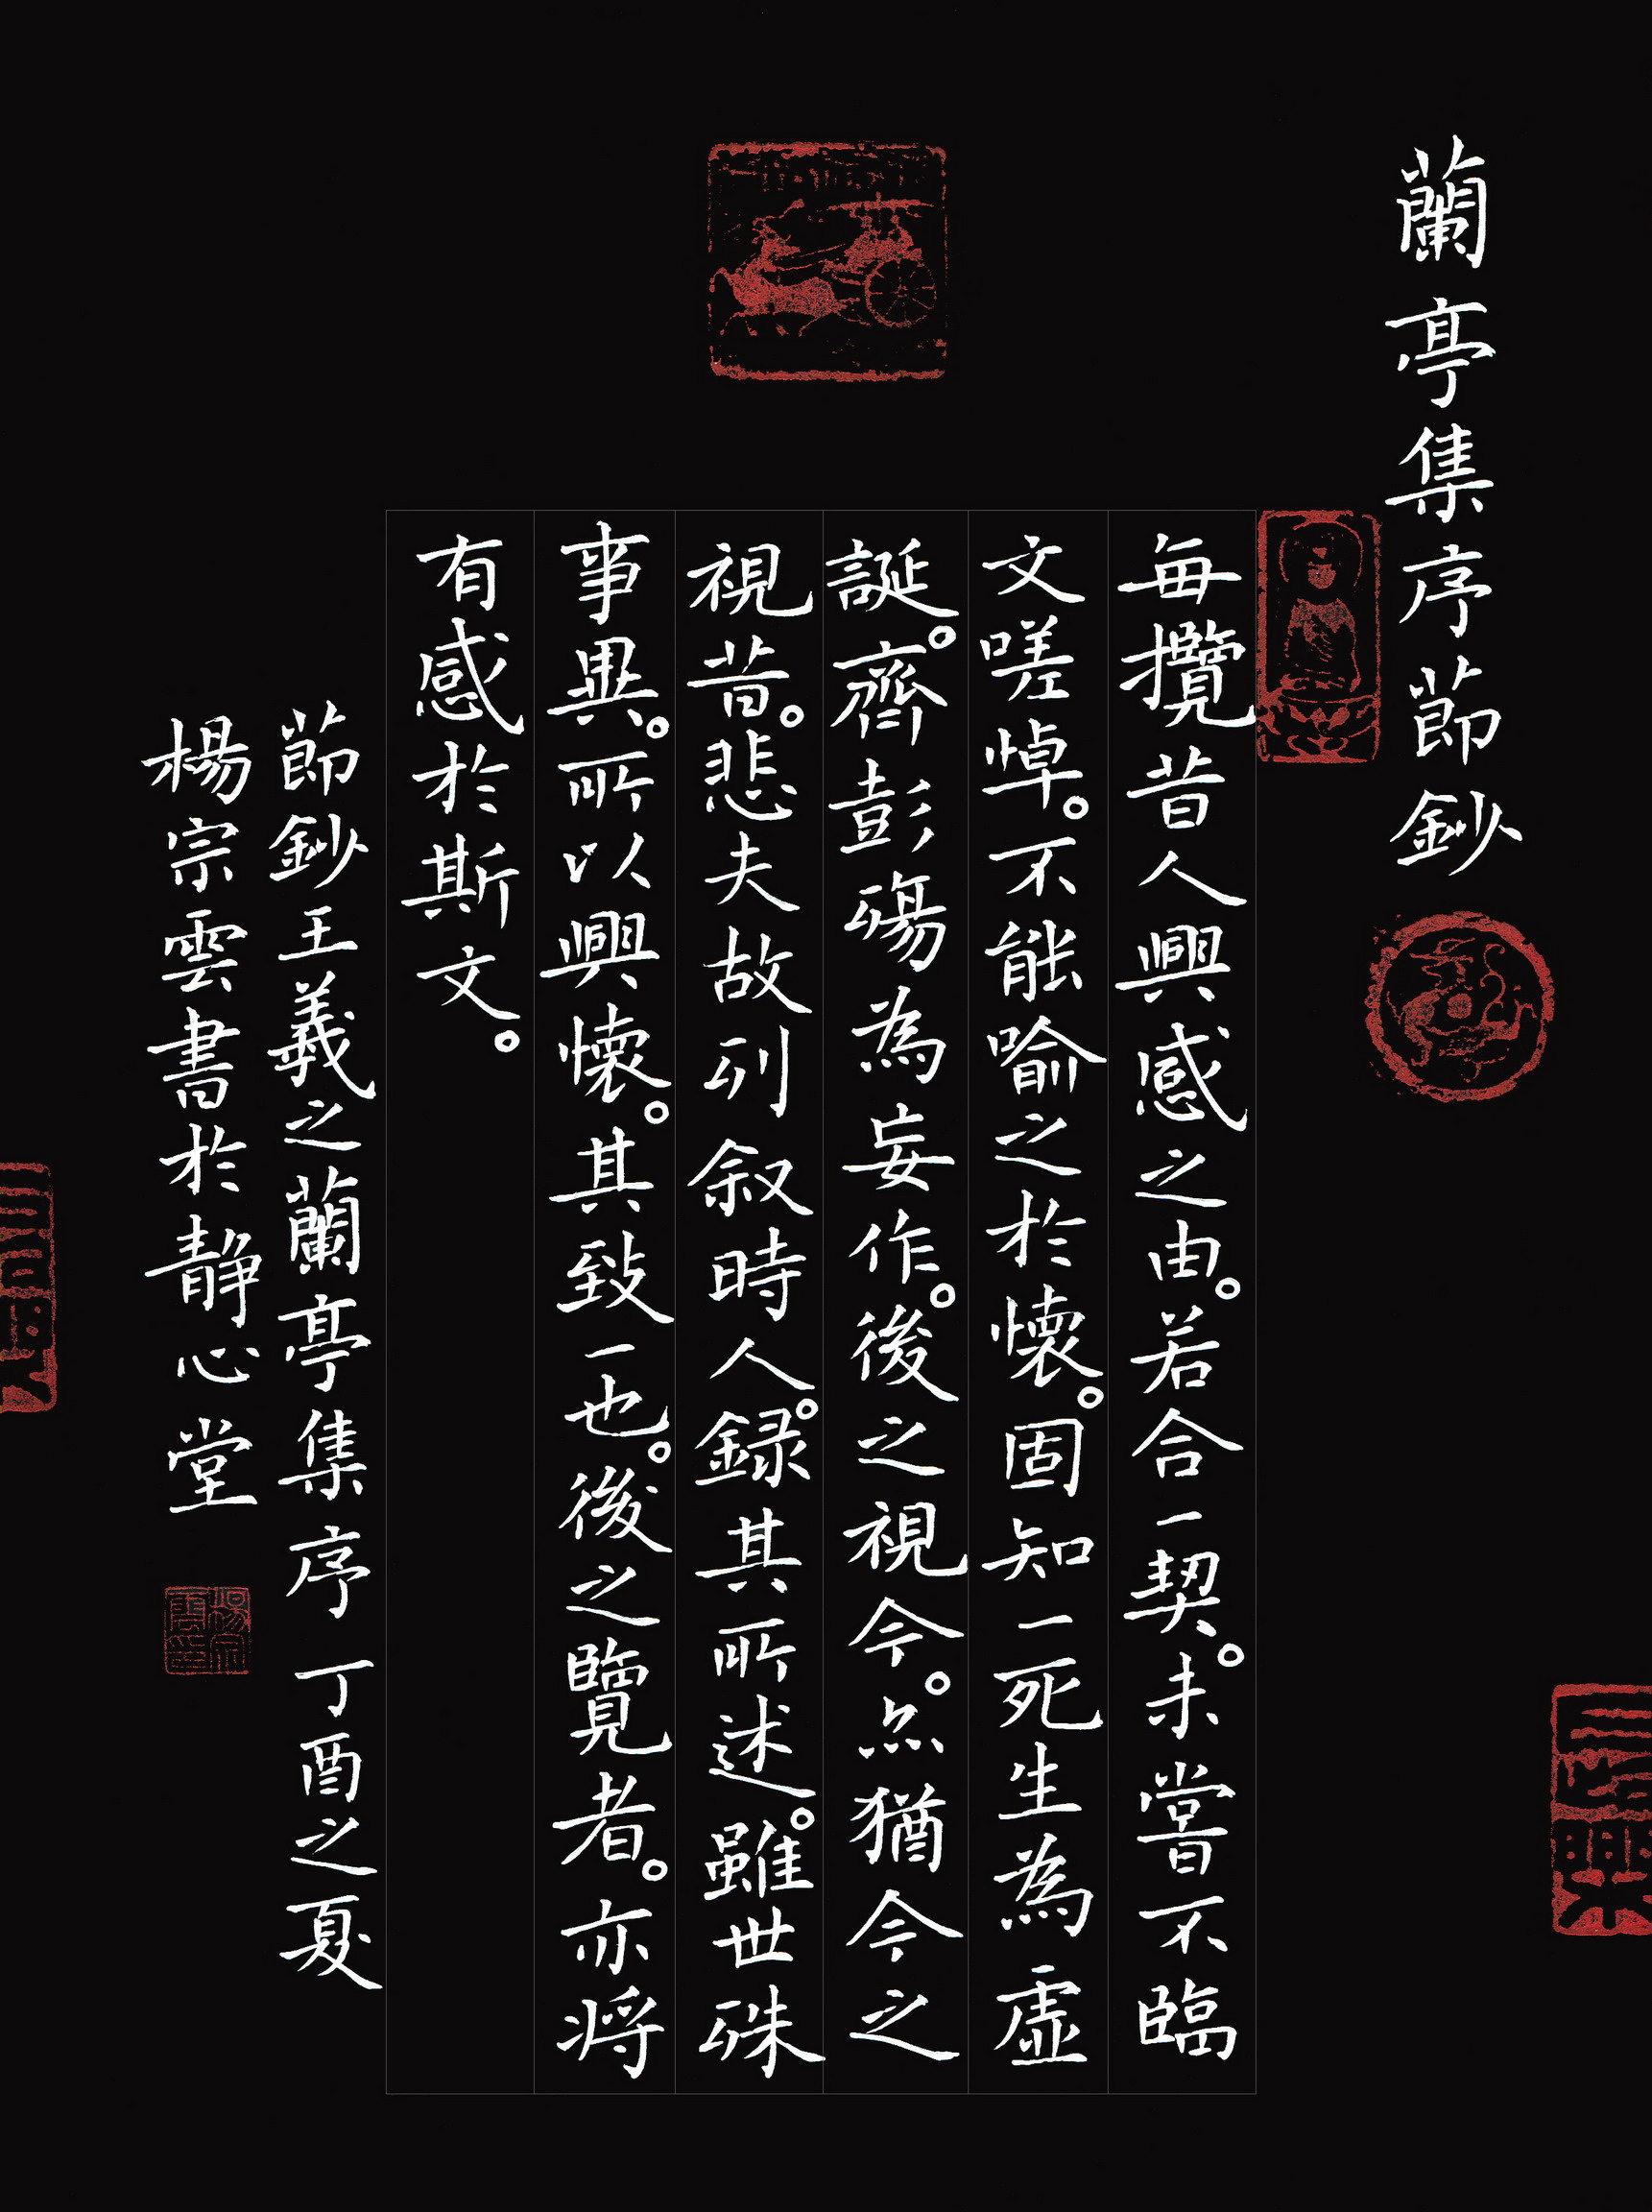 蘭亭集序節鈔
每攬昔人興感之由。若合一契。未嘗不臨
文嗟悼。不能喻之於懷。固知一死生為虛
誕。齊彭殤為妄作。後之視今。亦猶今之
視昔。悲夫故列叙時人。録其所述。雖世殊
事異。所以興懷。其致一也。後之覽者。亦将
有感於斯文。
節鈔王羲之蘭亭集序丁酉之夏
楊宗雲書於靜心堂